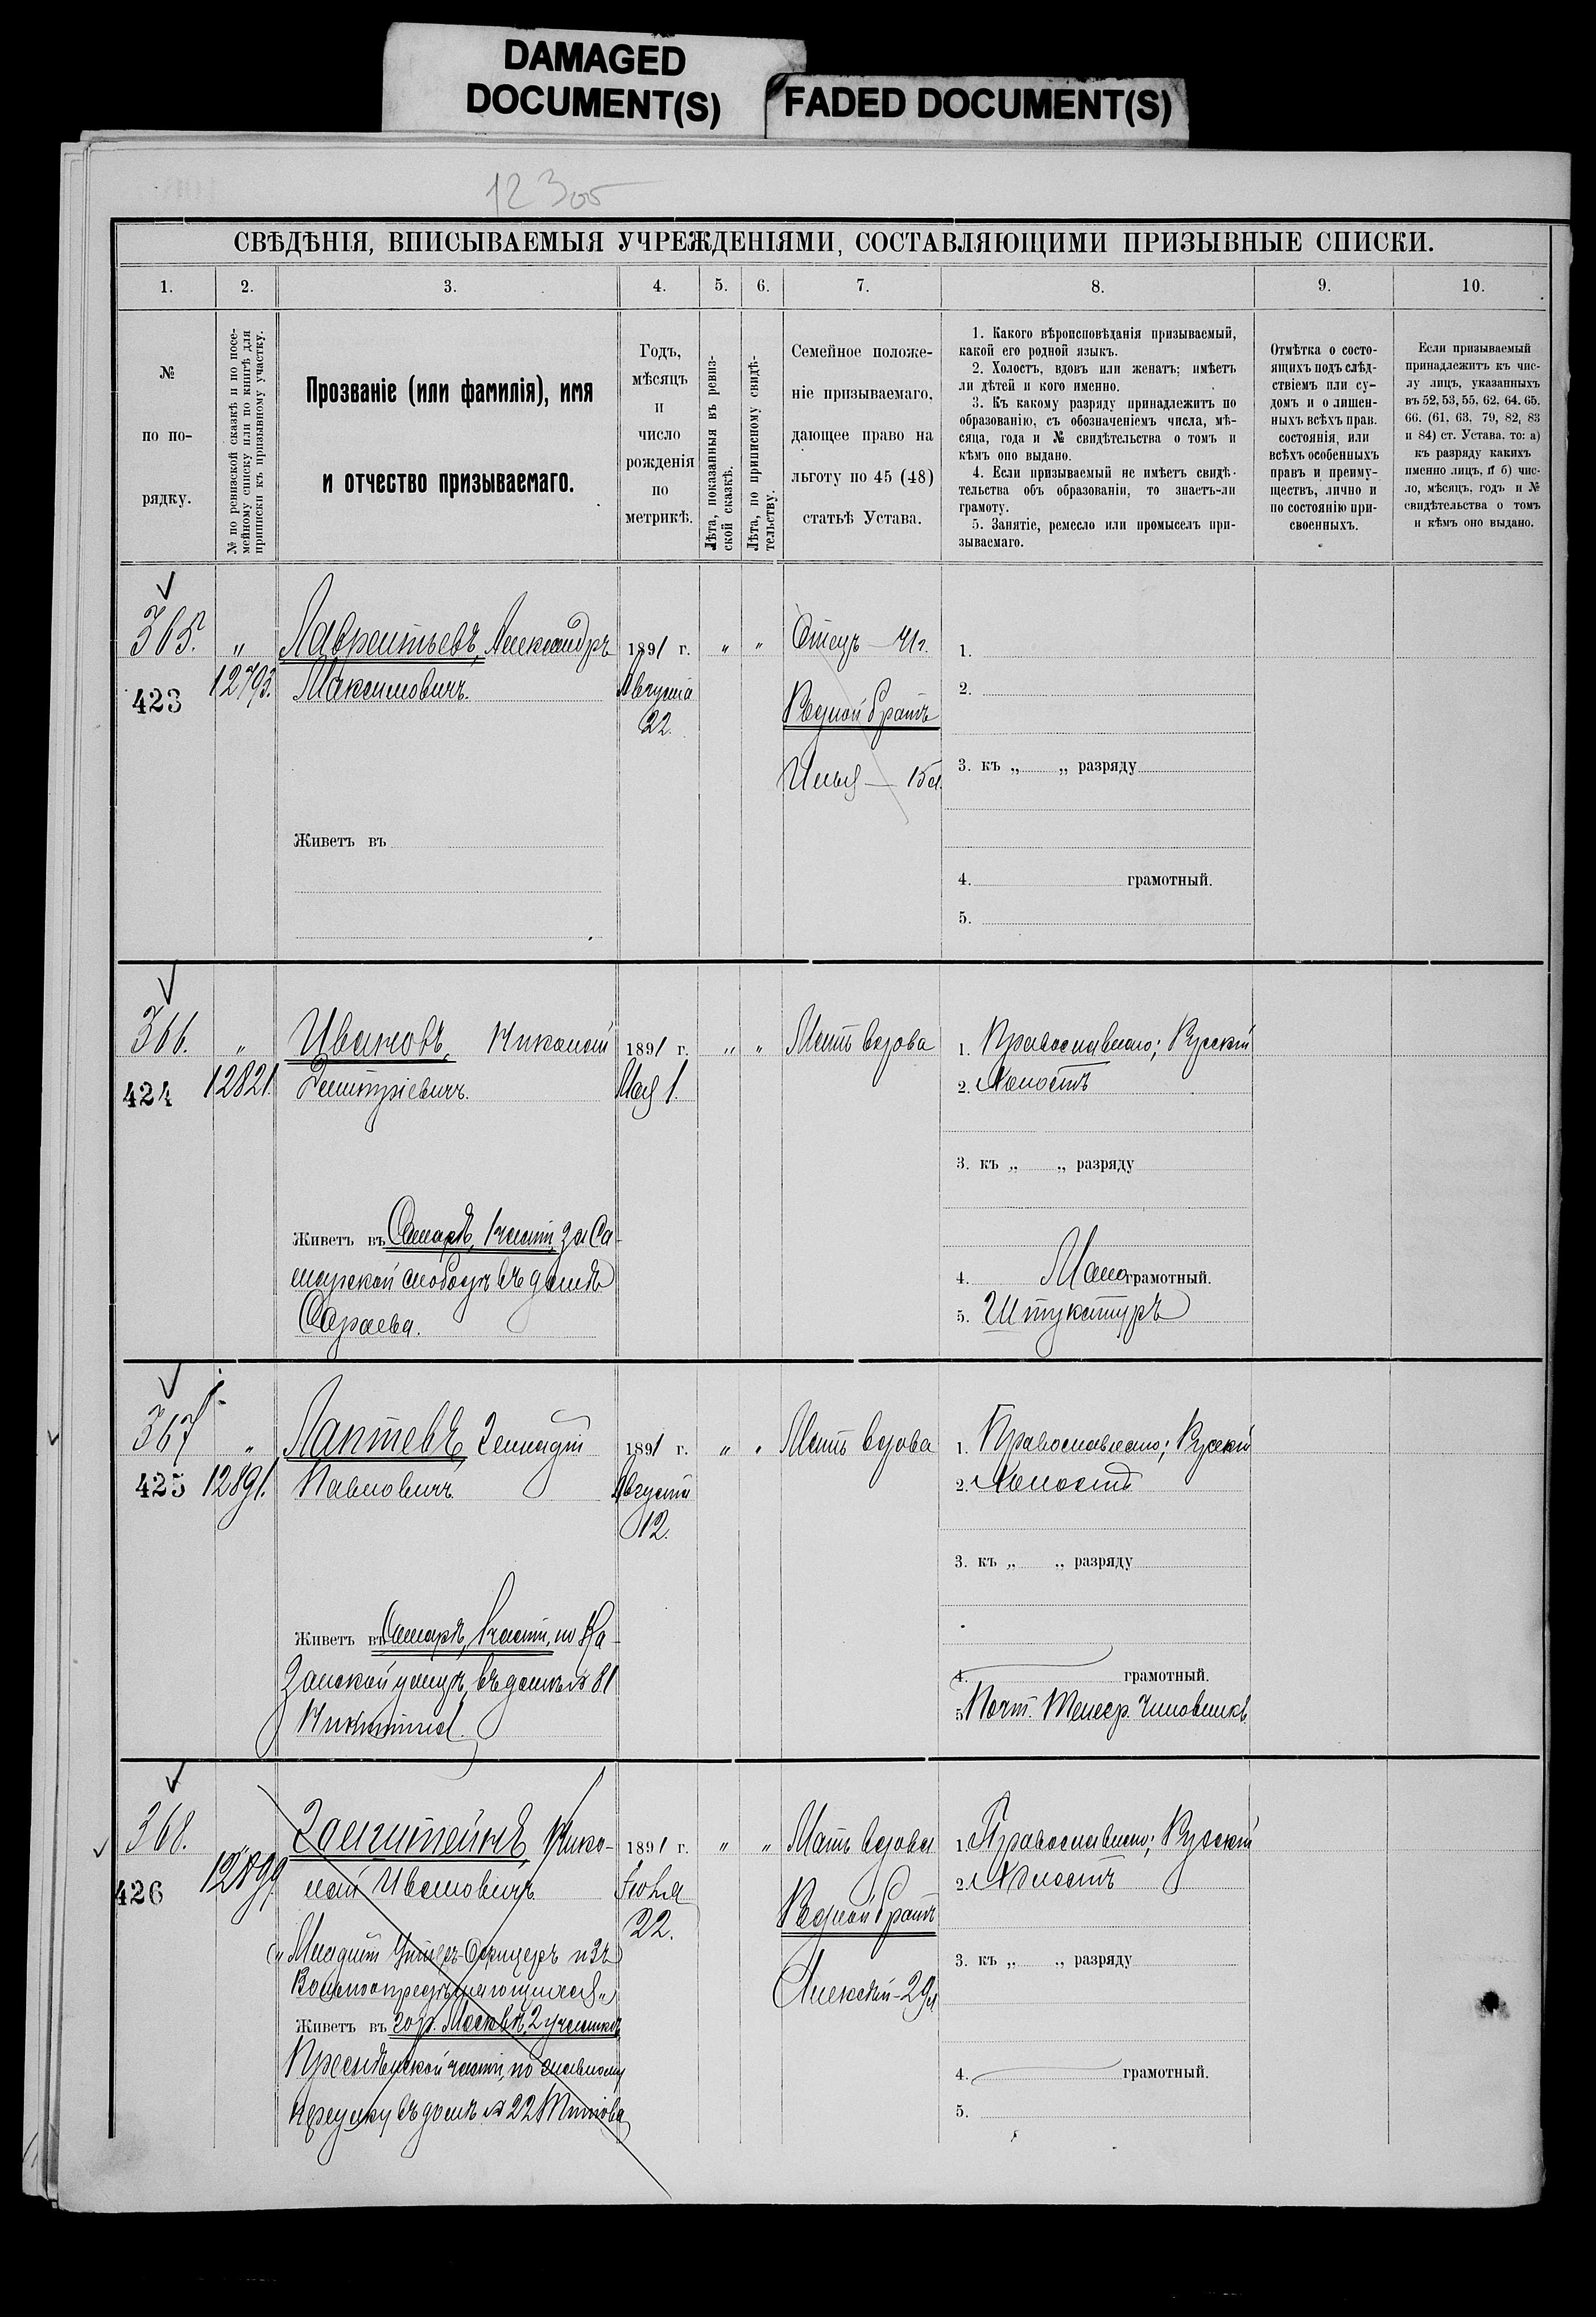 DAMAGED
DOCUMENT(S)
FADED DOCUMENT(S)
12305
СВѢДѢНІЯ, ВПИСЫВАЕМЫЯ УЧРЕЖДЕНІЯМИ, СОСТАВЛЯЮЩИМИ ПРИЗЫВНЫЕ СПИСКИ.
1.
2.
3.
4.
5.
6.
7.
8.
9.
10.
№
по по-
рядку.
№ по ревизской сказкѣ и по посе-
мейному списку или по книгѣ для
приписки къ призывному участку.
Прозваніе (или фамилія), имя
и отчество призываемаго.
Годъ,
мѣсяцъ
и
число
рожденія
по
метрикѣ.
Лѣта, показанныя въ ревиз-
ской сказкѣ.
Лѣта, по приписному свидѣ-
тельству.
Семейное положе-
ніе призываемаго,
дающее право на
льготу по 45 (48)
статьѣ Устава.
1. Какого вѣроисповѣданія призываемый,
какой его родной языкъ.
2. Холостъ, вдовъ или женатъ; имѣетъ
ли дѣтей и кого именно.
3. Къ какому разряду принадлежитъ по
образованію, съ обозначеніемъ числа, мѣ-
сяца, года и № свидѣтельства о томъ и
кѣмъ оно выдано.
4. Если призываемый не имѣетъ свидѣ-
тельства объ образованіи, то знаетъ-ли
грамоту.
5. Занятіе, ремесло или промыселъ при-
зываемаго.
Отмѣтка о состо-
ящихъ подъ слѣд-
ствіемъ или су-
домъ и о лишен-
ныхъ всѣхъ прав.
состоянія, или
всѣхъ особенныхъ
правъ и преиму-
ществъ, лично и
по состоянію при-
своенныхъ.
Если призываемый
принадлежитъ къ чис-
лу лицъ, указанныхъ
въ 52, 53, 55, 62, 64, 65,
66, (61, 63, 79, 82, 83
и 84) ст. Устава, то: а)
къ разряду какихъ
именно лицъ, и б) чис-
ло, мѣсяцъ, годъ и №
свидѣтельства о томъ
и кѣмъ оно выдано.
365.
423
"
12793.
Лаврентьевъ, Александръ
Максимовичъ.
Живетъ въ
1891 г.
Августа
22.
"
"
Отецъ — 41 г.
Родной братъ
Илья — 15 л.
1.
2.
3. къ „ „ разряду
4. грамотный.
5.
366.
424
"
12821.
Ивановъ, Николай
Дмитріевичъ.
Живетъ въ Самарѣ, 1 части, за Са-
марской слободѣ въ домѣ
Сараева.
1891 г.
Мая 1.
"
"
Мать вдова
1. Православнаго; Русскій
2. Холостъ
3. къ „ „ разряду
4. Малограмотный.
5. Штукатуръ
367
425
"
12891.
Лаптевъ, Геннадій
Павловичъ
Живетъ въ Самарѣ, 1 части, по Ка-
занской улицѣ, въ домѣ № 81
1891 г.
Августа
12.
"
"
Мать вдова
1. Православнаго; Русскій
2. Холостъ
3. къ „ „ разряду
4. грамотный.
5. Почт. Телегр. Чиновникъ
368.
426
12899
Нико-
лай Ивановичъ
(„Младшій Унтеръ-Офицеръ изъ
Вольноопредѣляющихся„)
Живетъ въ гор. Москвѣ, 2 участкѣ
Прѣсненской части, по
переулку въ домѣ № 22 Титова
1891 г.
Іюля
22.
"
"
Мать вдова
Родной братъ
Алексѣй - 29 л
1. Православнаго; Русскій
2. Холостъ
3. къ „ „ разряду
4. грамотный.
5.